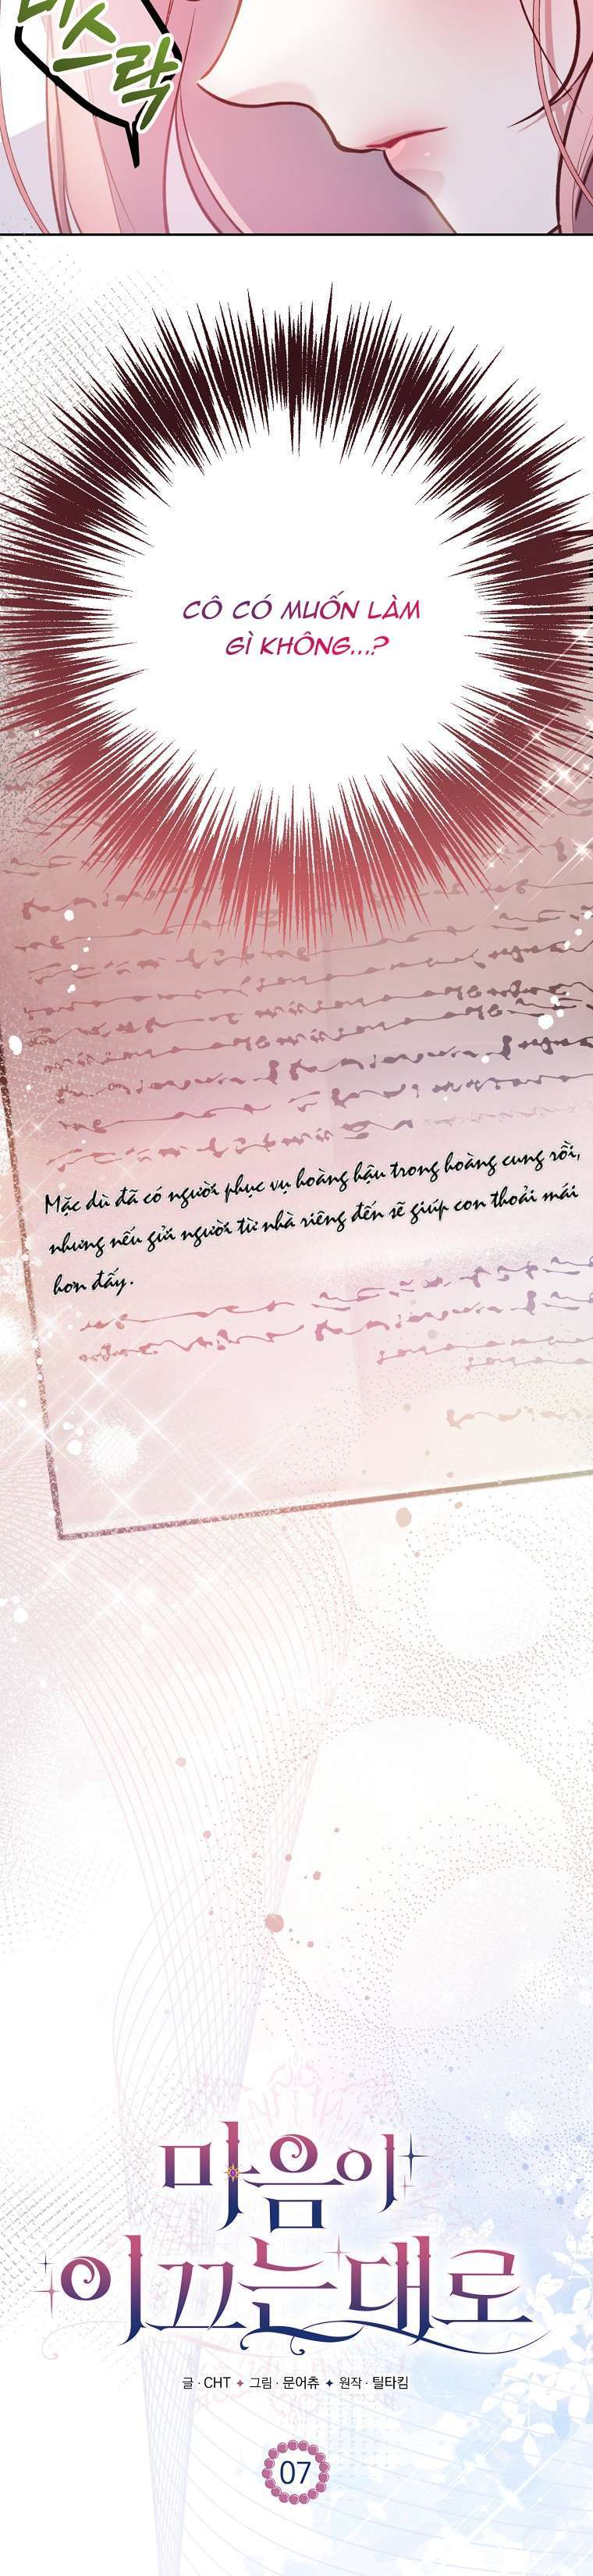 바스락
CÔ CÓ MUỐN LÀM
GÌ KHÔNG...?
Mặc dù đã có người phục vụ hoàng hậu trong hoàng cung rồi,
nhưng nếu gửi người từ nhà riêng đến sẽ giúp con thoải mái
hơn đấy.
마음이
이끄는대로
글 · CHT ✦ 그림 · 문어츄 ✦ 원작 · 틸타킴
07